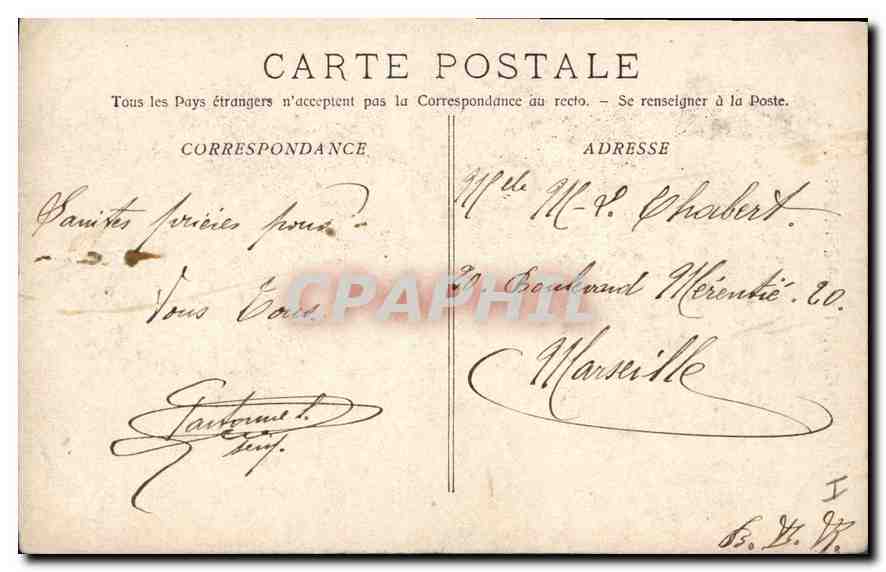 CARTE POSTALE
Tous les Pays étrangers n'acceptent pas la Correspondance au recto. - Se renseigner à la Poste.
CORRESPONDANCE
Saintes prières pour
Vous Tous.
ADRESSE
Melle M-L. Chabert.
20. Boulevard Mérentié. 20.
Marseille
I
B. D. R.
CPAPHIL